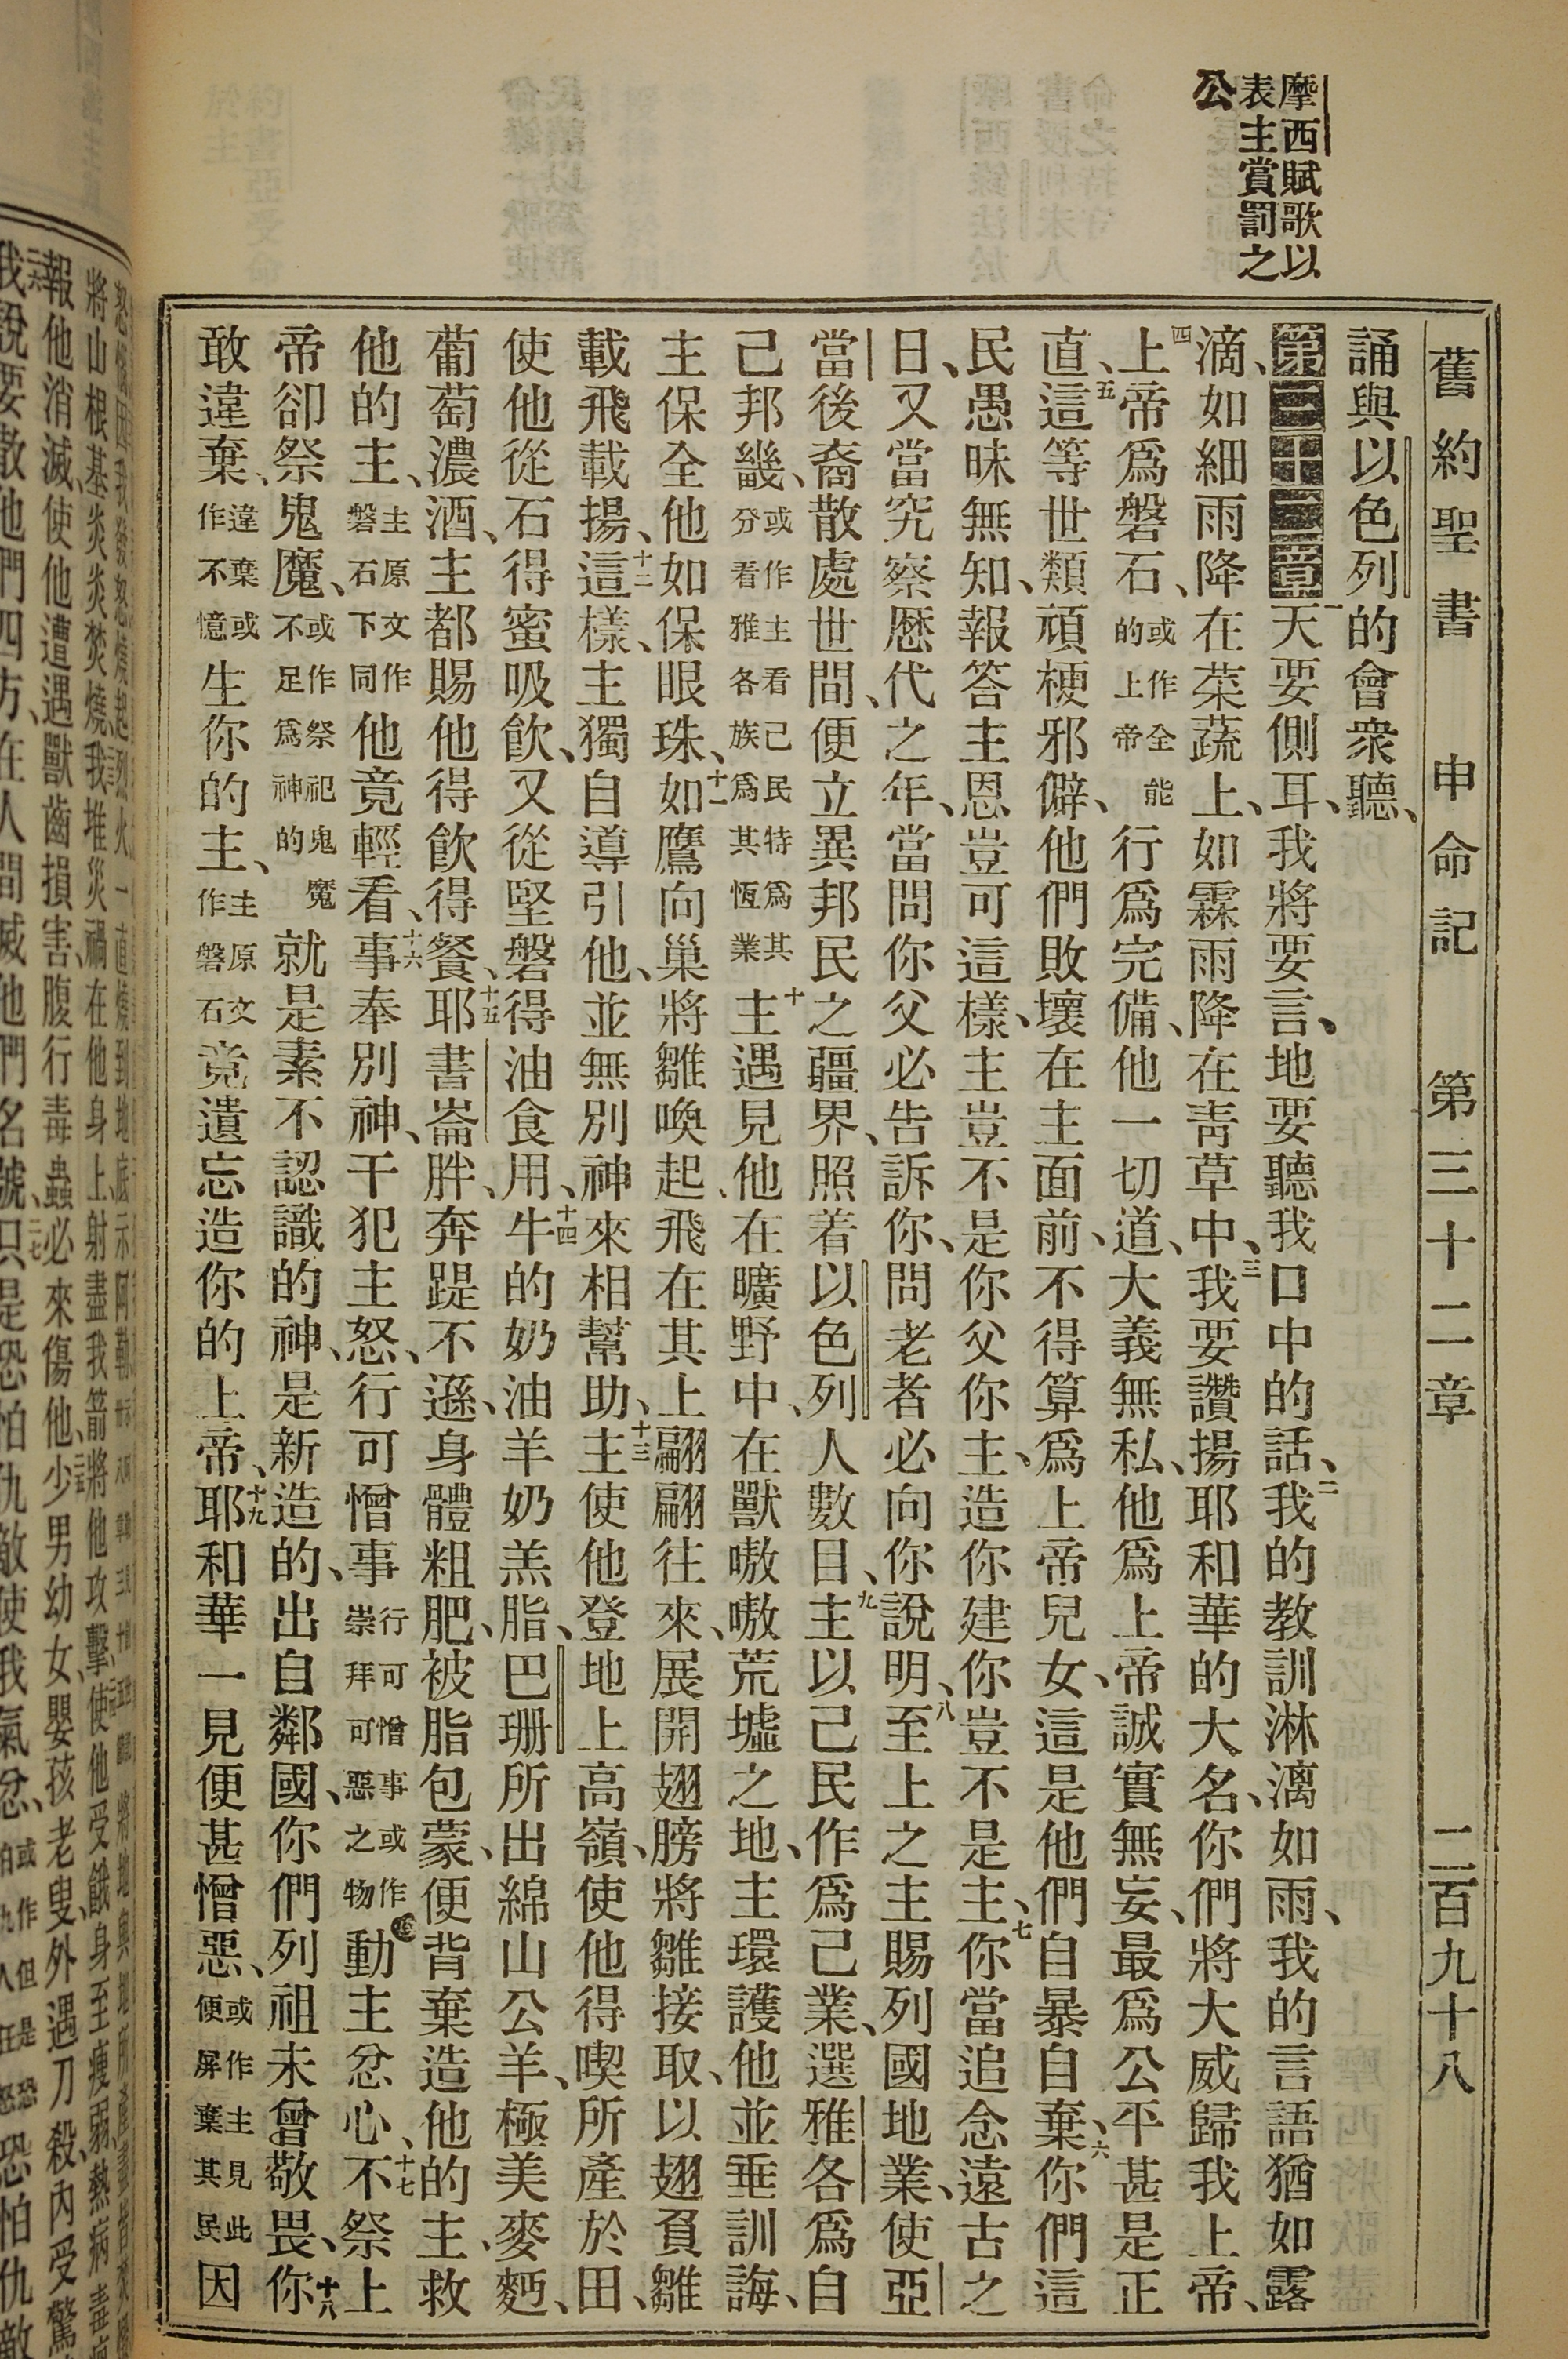 舊約聖書 申命記 第三十二章 二百九十八
摩西賦歌以
表主賞罰之
公
誦與以色列的會衆聽、
第三十二章 一天要側耳、我將要言、地要聽我口中的話、二我的教訓淋漓如雨、我的言語猶如露
滴、如細雨降在菜蔬上、如霖雨降在靑草中、三我要讚揚耶和華的大名、你們將大威歸我上帝、
四上帝爲磐石、或作全能的上帝行爲完備、他一切道、大義無私、他爲上帝誠實無妄、最爲公平甚是正
直、五這等世類頑梗邪僻、他們敗壞在主面前、不得算爲上帝兒女、這是他們自暴自棄、六你們這
民愚昧無知、報答主恩豈可這樣、主豈不是你父你主、造你建你豈不是主、七你當追念遠古之
日、又當究察歷代之年、當問你父必告訴你、問老者必向你說明、八至上之主賜列國地業、使亞
當後裔散處世間、便立異邦民之疆界、照着以色列人數目、九主以己民作爲己業、選雅各爲自
己邦畿、或作主看己民特爲其分看雅各族爲其恆業十主遇見他在曠野中、在獸嗷嗷荒墟之地、主環護他並垂訓誨、
主保全他如保眼珠、十一如鷹向巢將雛喚起、飛在其上翩翩往來、展開翅膀將雛接取、以翅負雛
載飛載揚、十二這樣、主獨自導引他、並無別神來相幫助、十三主使他登地上高嶺、使他得喫所產於田、
使他從石得蜜吸飮、又從堅磐得油食用、十四牛的奶油羊奶羔脂、巴珊所出綿山公羊、極美麥麪、
葡萄濃酒、主都賜他得飮得餐、十五耶書崙胖、奔踶不遜、身體粗肥、被脂包蒙、便背棄造他的主、救
他的主、主原文作磐石下同他竟輕看、十六事奉別神、干犯主怒、行可憎事行可憎事或作崇拜可惡之物動主忿心、十七不祭上
帝卻祭鬼魔、或作祭祀鬼魔不足爲神的就是素不認識的神、是新造的、出自鄰國、你們列祖未曾敬畏、十八你
敢違棄、違棄或作不憶生你的主、主原文作磐石竟遺忘造你的上帝、十九耶和華一見便甚憎惡、或作主見此便屏棄其民因